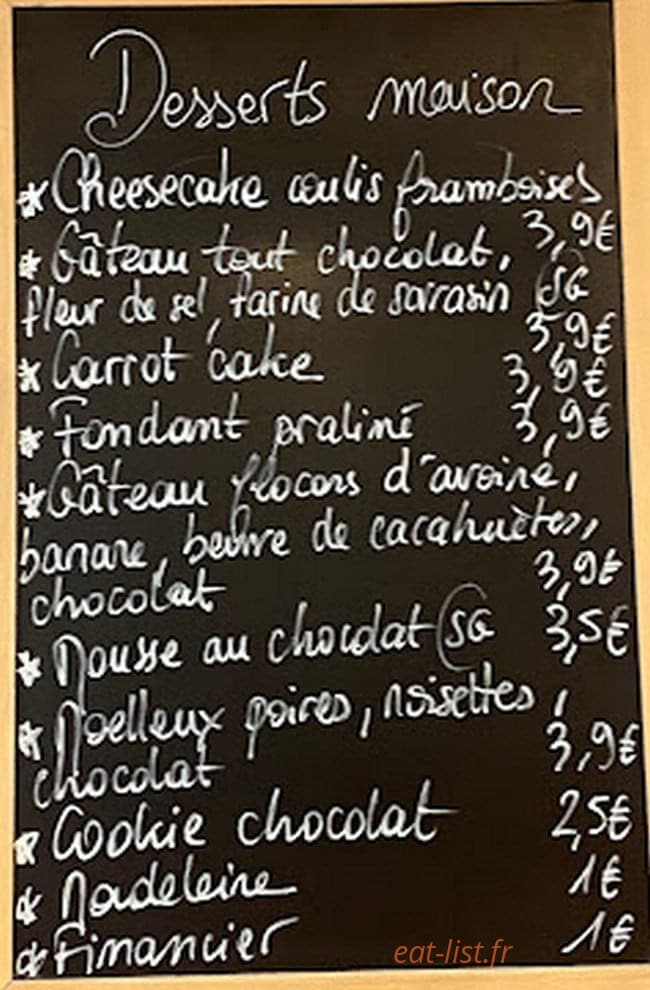 Desserts maison
* Cheesecake coulis framboises
3,9€
* Gâteau tout chocolat,
fleur de sel, farine de sarrasin SG
3,9€
* Carrot cake 3,9€
* Fondant praliné 3,9€
* Gâteau flocons d'avoine,
banane, beurre de cacahuètes,
chocolat 3,9€
* Mousse au chocolat SG 3,5€
* Moelleux poires, noisettes,
chocolat 3,9€
* Cookie chocolat 2,5€
* Madeleine 1€
* Financier 1€
eat-list.fr